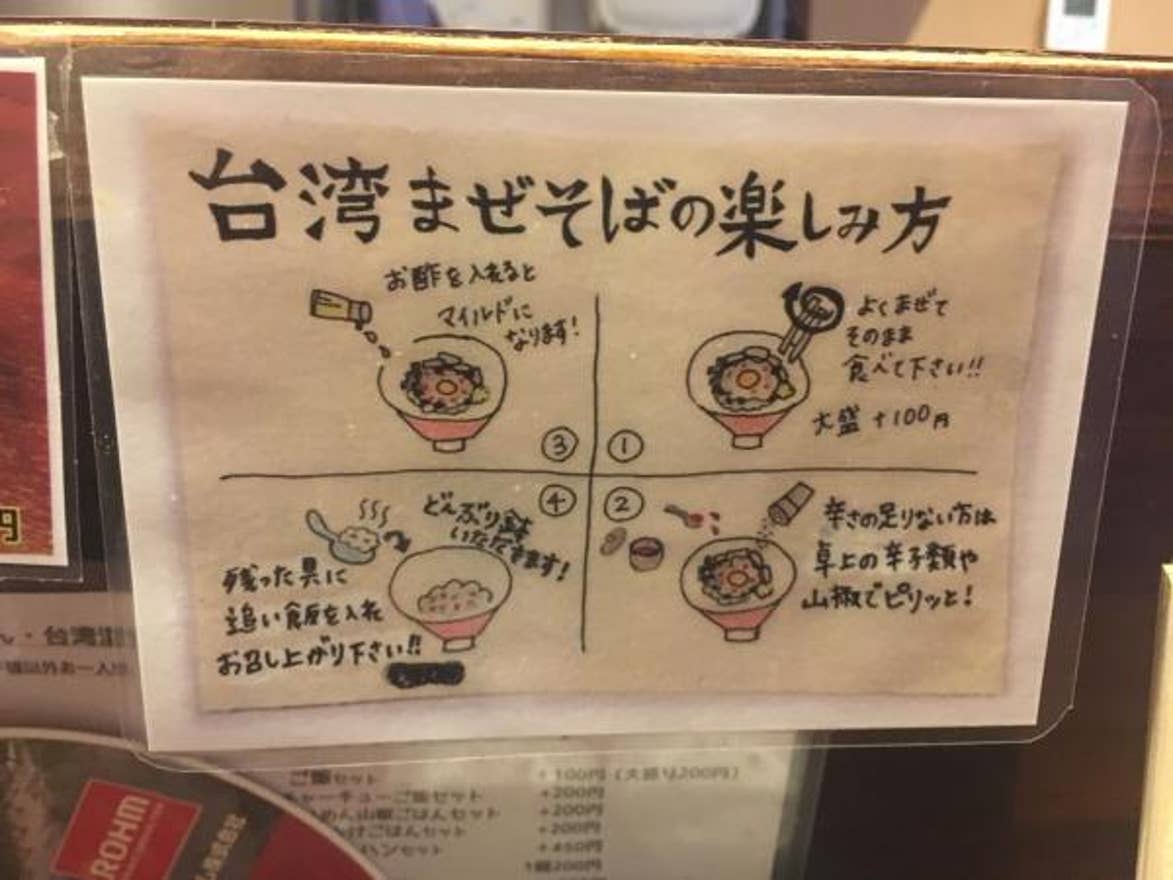 台湾まぜそばの楽しみ方
①
よくまぜて
そのまま
食べて下さい!!
大盛 +100円
②
辛さの足りない方は
卓上の辛子類や
山椒でピリッと!
③
お酢を入れると
マイルドに
なります!
④
残った具に
追い飯を入れ
お召し上がり下さい!!
どんぶり鉢
いただきます!
円
ん・台湾
ご飯セット +100円(大盛り200円)
チャーチューご飯セット +200円
めん山椒ごはんセット +200円
けごはんセット +200円
ハンセット +450円
1個200円
ROHM